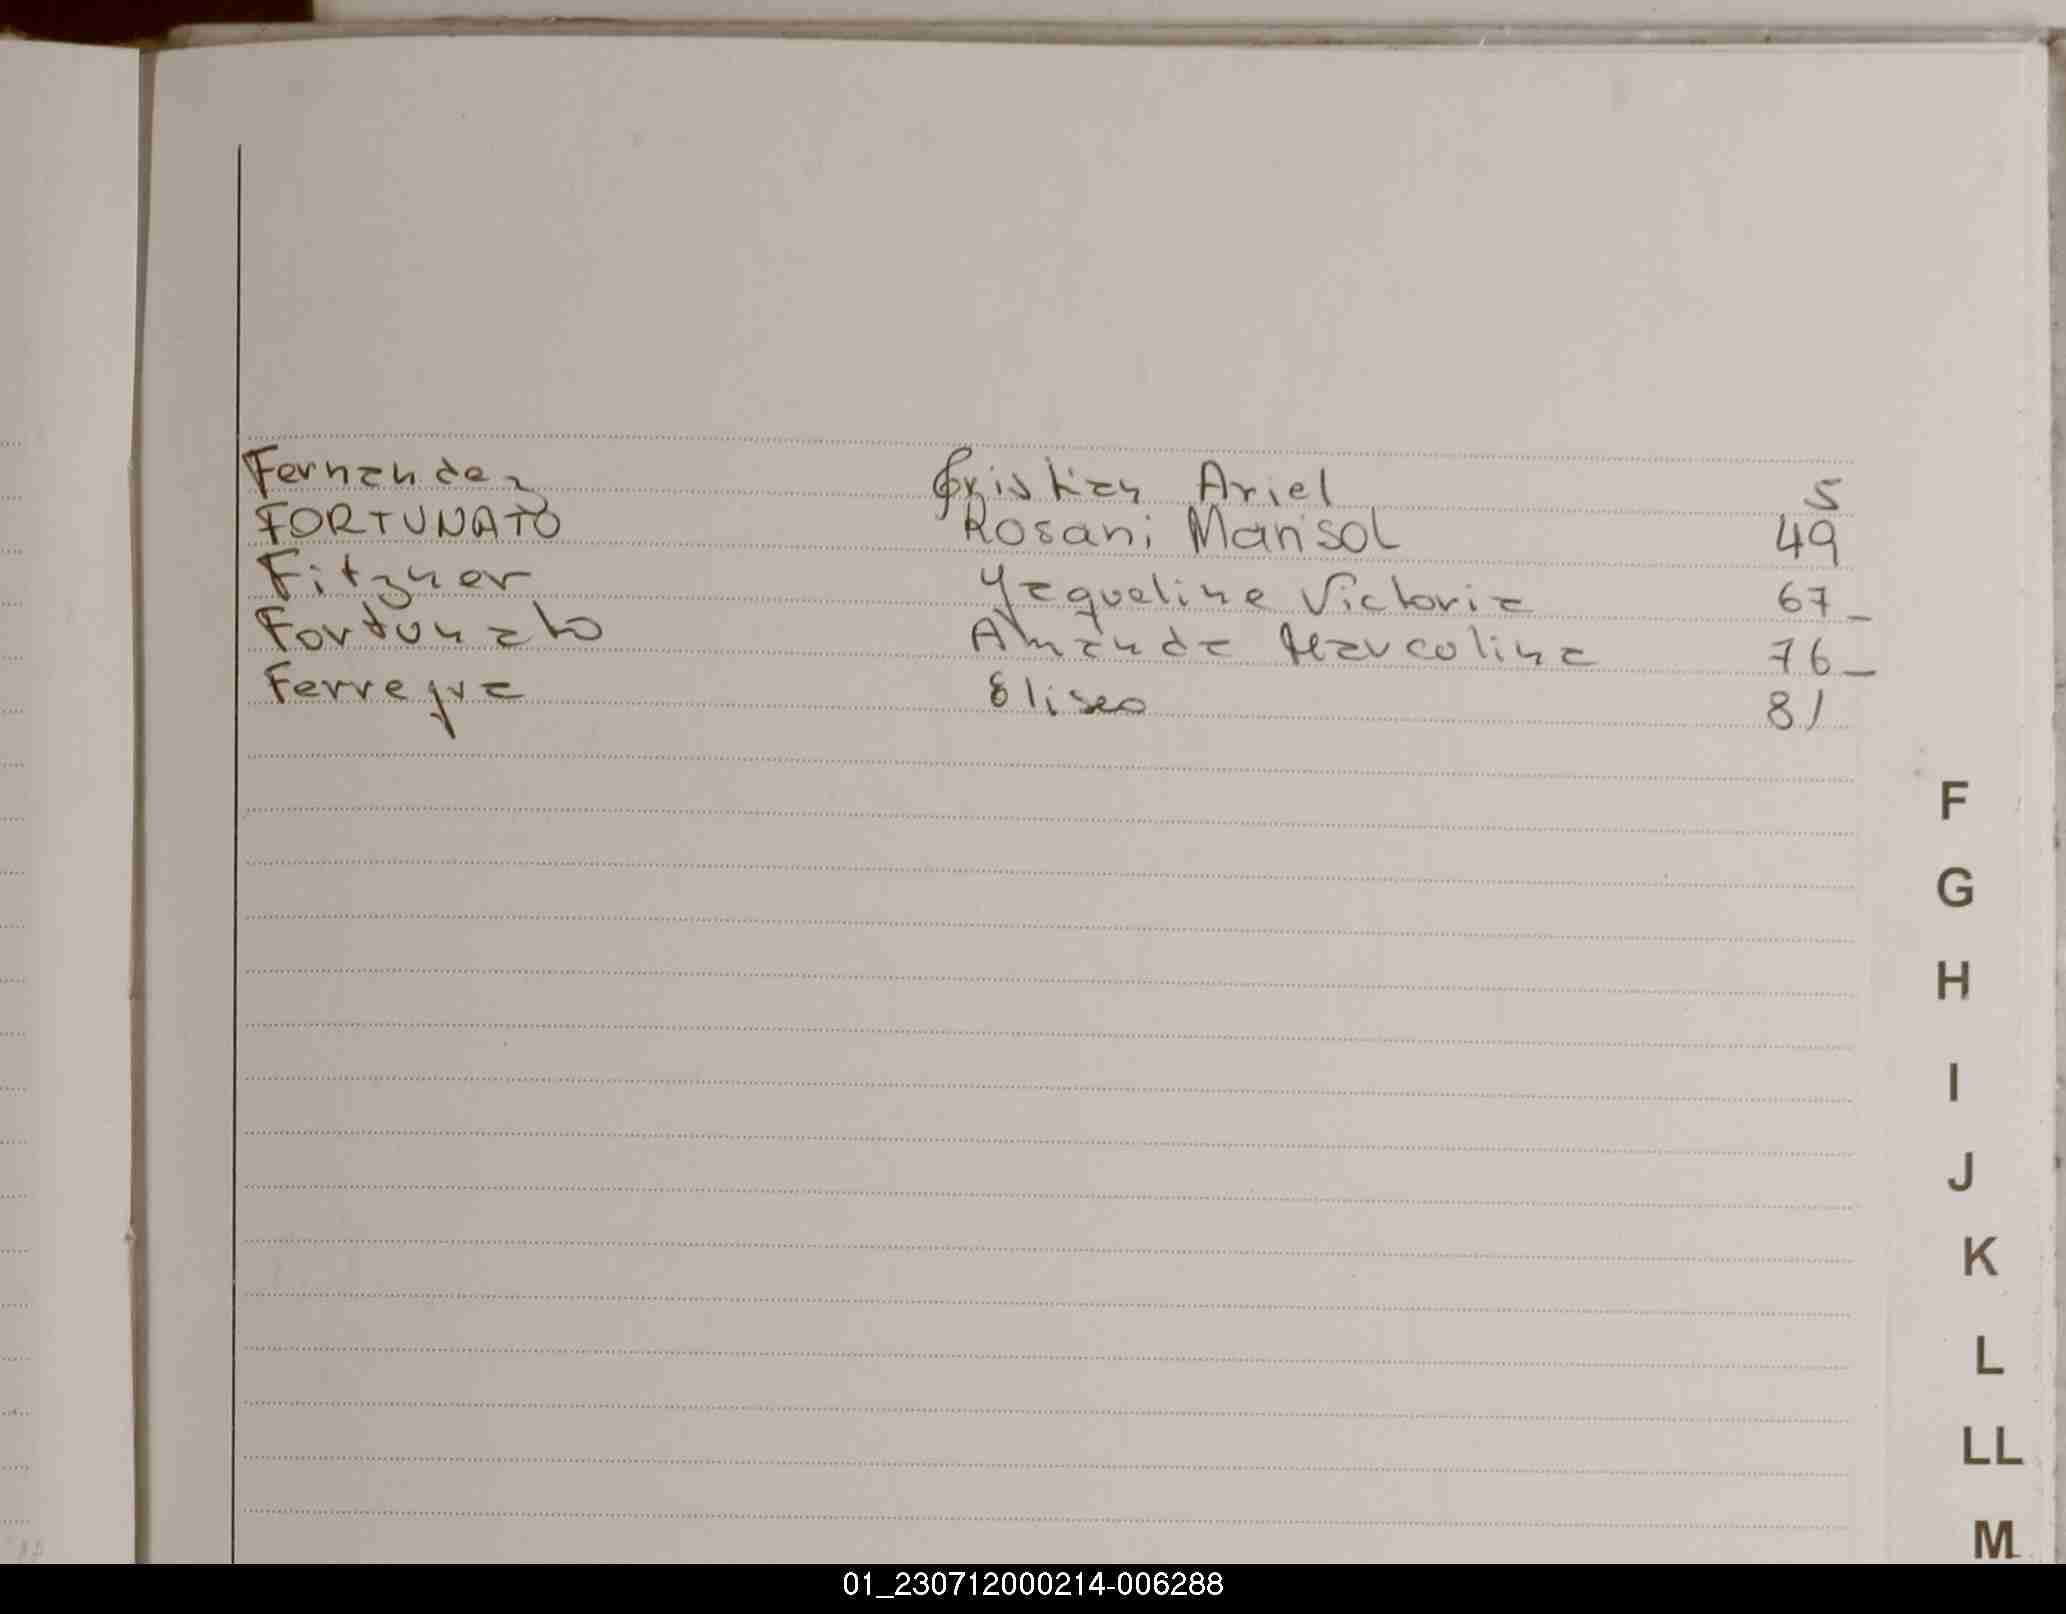 Fernandez Cristian Ariel 5
FORTUNATO Rosani Marisol 49
Fitzner Yaqueline Victoria 67_
Fortunato Amanda Marcolina 76_
Ferreyra Eliseo 81
F
G
H
I
J
K
L
LL
M
01_230712000214-006288